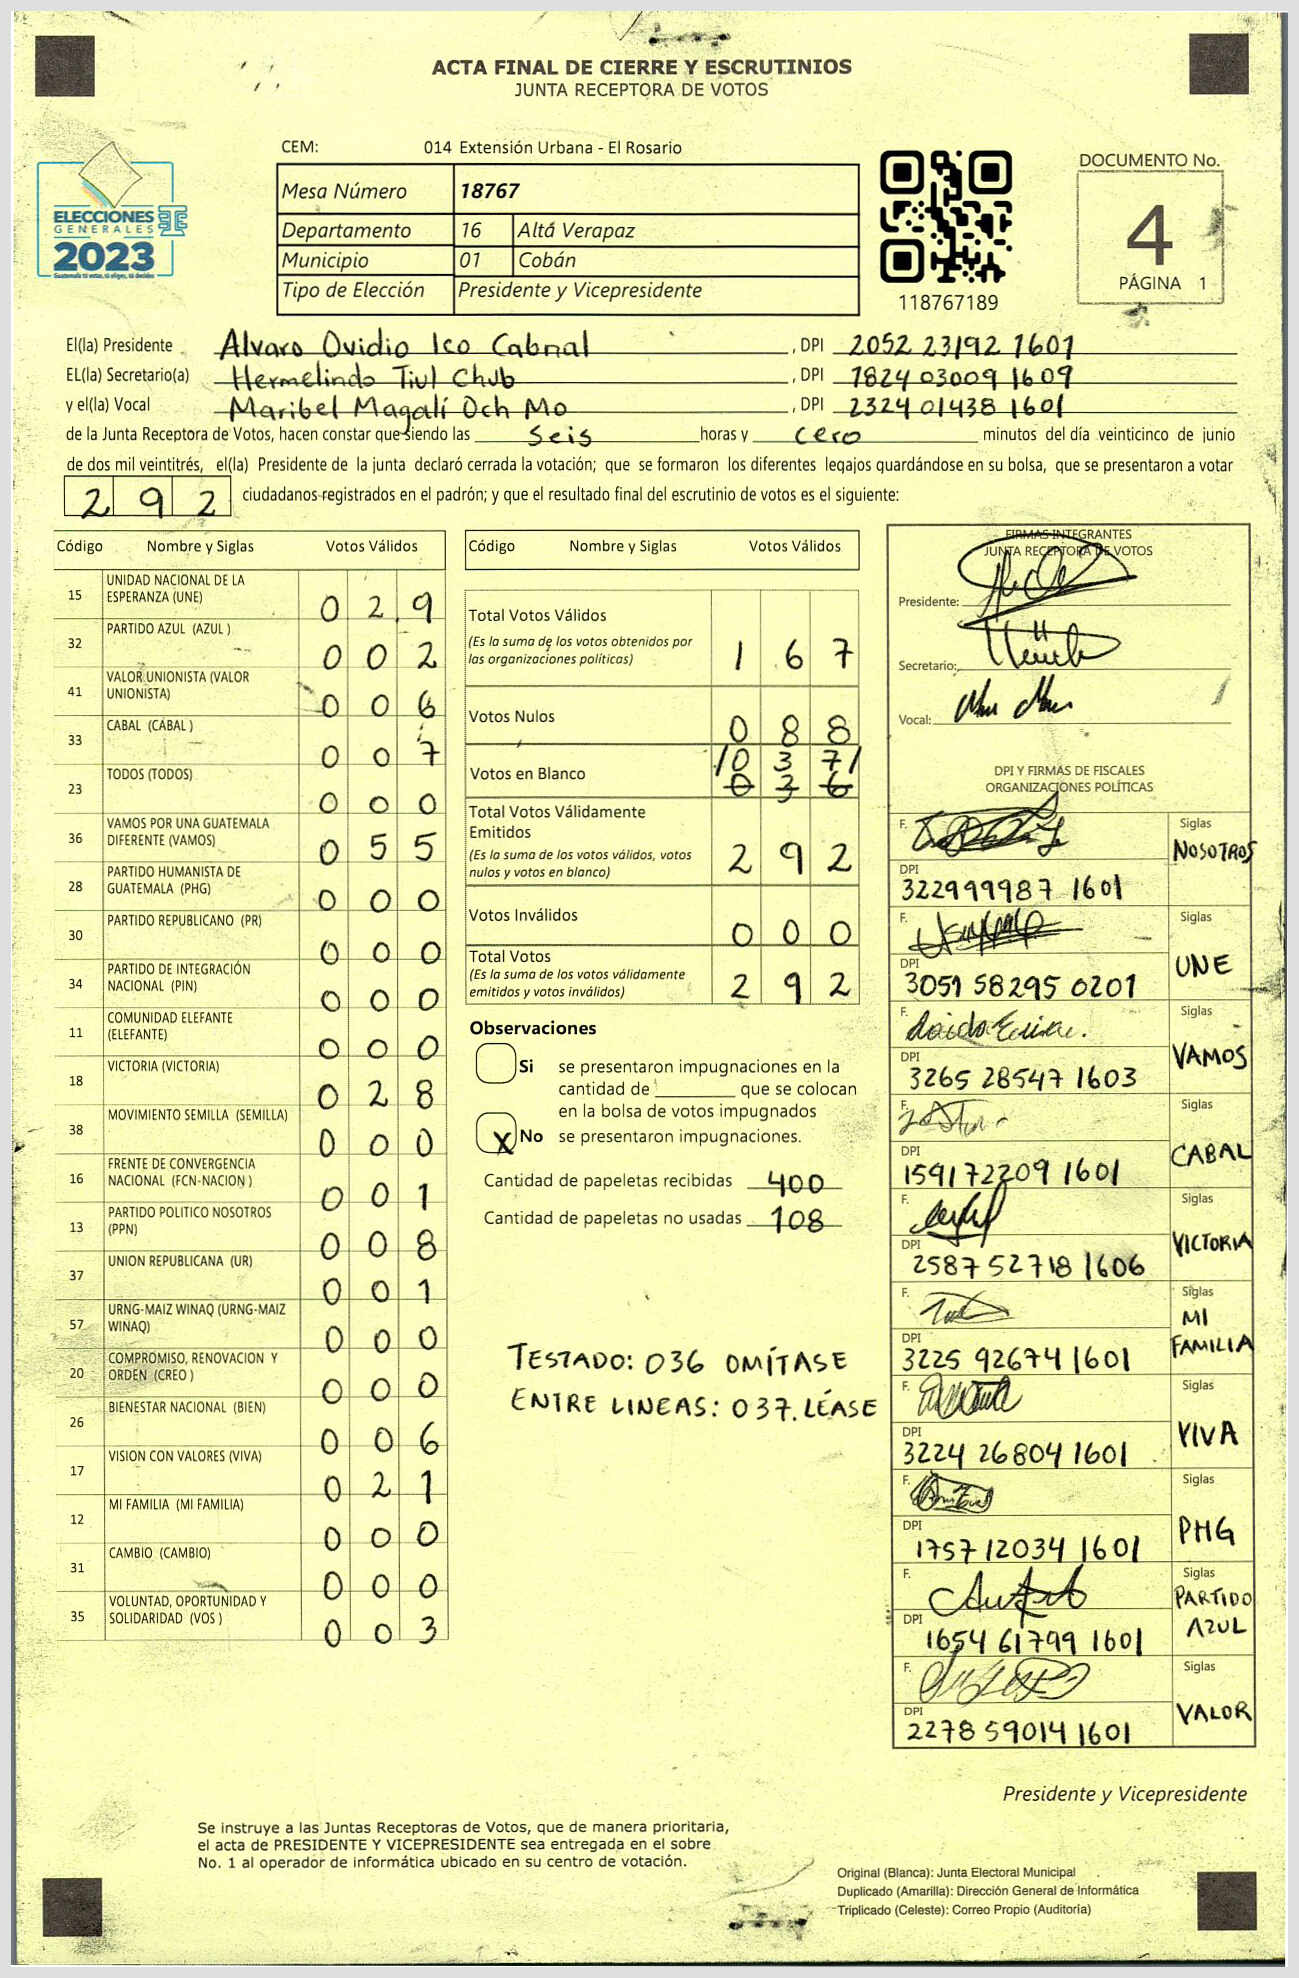 ACTA FINAL DE CIERRE Y ESCRUTINIOS
JUNTA RECEPTORA DE VOTOS
CEM: 014 Extensión Urbana - El Rosario
Mesa Número 18767
Departamento 16 Alta Verapaz
Municipio 01 Cobán
Tipo de Elección Presidente y Vicepresidente
ELECCIONES
GENERALES
2023
118767189
DOCUMENTO No.
4
PÁGINA 1
El(la) Presidente Alvaro Ovidio Ico Cabnal , DPI 2052 23192 1601
EL(la) Secretario(a) Hermelindo Tiul Chub , DPI 1824 03009 1609
y el(la) Vocal Maribel Magalí Och Mo , DPI 2324 01438 1601
de la Junta Receptora de Votos, hacen constar que siendo las seis horas y cero minutos del día veinticinco de junio
de dos mil veintitrés, el(la) Presidente de la junta declaró cerrada la votación; que se formaron los diferentes legajos guardándose en su bolsa, que se presentaron a votar
292 ciudadanos registrados en el padrón; y que el resultado final del escrutinio de votos es el siguiente:
Código Nombre y Siglas Votos Válidos
15 UNIDAD NACIONAL DE LA ESPERANZA (UNE) 0 2 9
32 PARTIDO AZUL (AZUL ) 0 0 2
41 VALOR UNIONISTA (VALOR UNIONISTA) 0 0 6
33 CABAL (CABAL ) 0 0 7
23 TODOS (TODOS) 0 0 0
36 VAMOS POR UNA GUATEMALA DIFERENTE (VAMOS) 0 5 5
28 PARTIDO HUMANISTA DE GUATEMALA (PHG) 0 0 0
30 PARTIDO REPUBLICANO (PR) 0 0 0
34 PARTIDO DE INTEGRACIÓN NACIONAL (PIN) 0 0 0
11 COMUNIDAD ELEFANTE (ELEFANTE) 0 0 0
18 VICTORIA (VICTORIA) 0 2 8
38 MOVIMIENTO SEMILLA (SEMILLA) 0 0 0
16 FRENTE DE CONVERGENCIA NACIONAL (FCN-NACION ) 0 0 1
13 PARTIDO POLITICO NOSOTROS (PPN) 0 0 8
37 UNION REPUBLICANA (UR) 0 0 1
57 URNG-MAIZ WINAQ (URNG-MAIZ WINAQ) 0 0 0
20 COMPROMISO, RENOVACION Y ORDEN (CREO ) 0 0 0
26 BIENESTAR NACIONAL (BIEN) 0 0 6
17 VISION CON VALORES (VIVA) 0 2 1
12 MI FAMILIA (MI FAMILIA) 0 0 0
31 CAMBIO (CAMBIO) 0 0 0
35 VOLUNTAD, OPORTUNIDAD Y SOLIDARIDAD (VOS ) 0 0 3
Código Nombre y Siglas Votos Válidos
Total Votos Válidos 1 6 7
(Es la suma de los votos obtenidos por
las organizaciones políticas)
Votos Nulos 0 8 8
/0 3 7/
Votos en Blanco 0 3 6
Total Votos Válidamente
Emitidos 2 9 2
(Es la suma de los votos válidos, votos
nulos y votos en blanco)
Votos Inválidos 0 0 0
Total Votos 2 9 2
(Es la suma de los votos válidamente
emitidos y votos inválidos)
Observaciones
Si se presentaron impugnaciones en la
cantidad de ________ que se colocan
en la bolsa de votos impugnados
X No se presentaron impugnaciones.
Cantidad de papeletas recibidas 400
Cantidad de papeletas no usadas 108
TESTADO: 036 OMÍTASE
ENTRE LINEAS: 037. LÉASE
FIRMAS INTEGRANTES
JUNTA RECEPTORA DE VOTOS
Presidente:
Secretario:
Vocal:
DPI Y FIRMAS DE FISCALES
ORGANIZACIONES POLÍTICAS
F. Siglas NOSOTROS
DPI 322999987 1601
F. Siglas UNE
DPI 3051 58295 0201
F. Siglas VAMOS
DPI 3265 28547 1603
F. Siglas CABAL
DPI 159172209 1601
F. Siglas VICTORIA
DPI 2587 52718 1606
F. Siglas MI FAMILIA
DPI 3225 92674 1601
F. Siglas VIVA
DPI 3224 26804 1601
F. Siglas PHG
DPI 1757 12034 1601
F. Siglas PARTIDO AZUL
DPI 1654 61799 1601
F. Siglas VALOR
DPI 2278 59014 1601
Presidente y Vicepresidente
Se instruye a las Juntas Receptoras de Votos, que de manera prioritaria,
el acta de PRESIDENTE Y VICEPRESIDENTE sea entregada en el sobre
No. 1 al operador de informática ubicado en su centro de votación.
Original (Blanca): Junta Electoral Municipal
Duplicado (Amarilla): Dirección General de Informática
Triplicado (Celeste): Correo Propio (Auditoría)